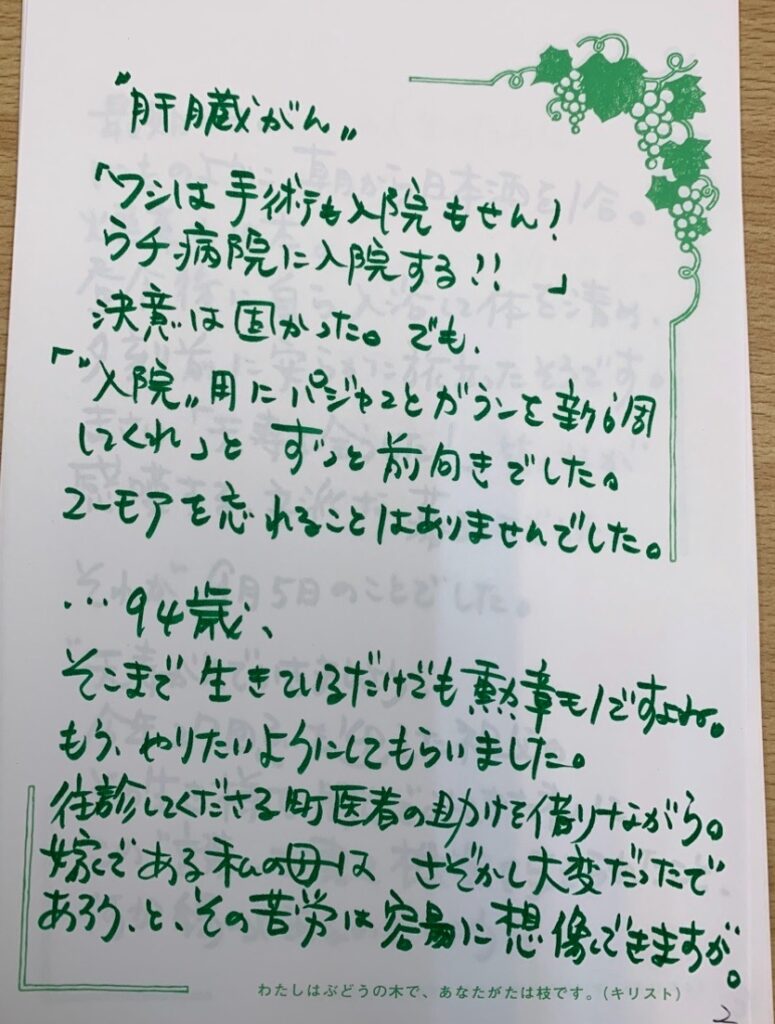 "肝臓がん„
「ワシは手術も入院もせん!
ウチ病院に入院する!!」
決意は固かった。でも、
「"入院„用にパジャマとガウンを新調
してくれ」と ずっと前向きでした。
ユーモアを忘れることはありませんでした。
…94歳、
そこまで生きているだけでも勲章モノですよね。
もう、やりたいようにしてもらいました。
往診してくださる町医者の助けを借りながら。
嫁である私の母は さぞかし大変だったで
あろう、と、その苦労は容易に想像できますが。
わたしはぶどうの木で、あなたがたは枝です。(キリスト)
2